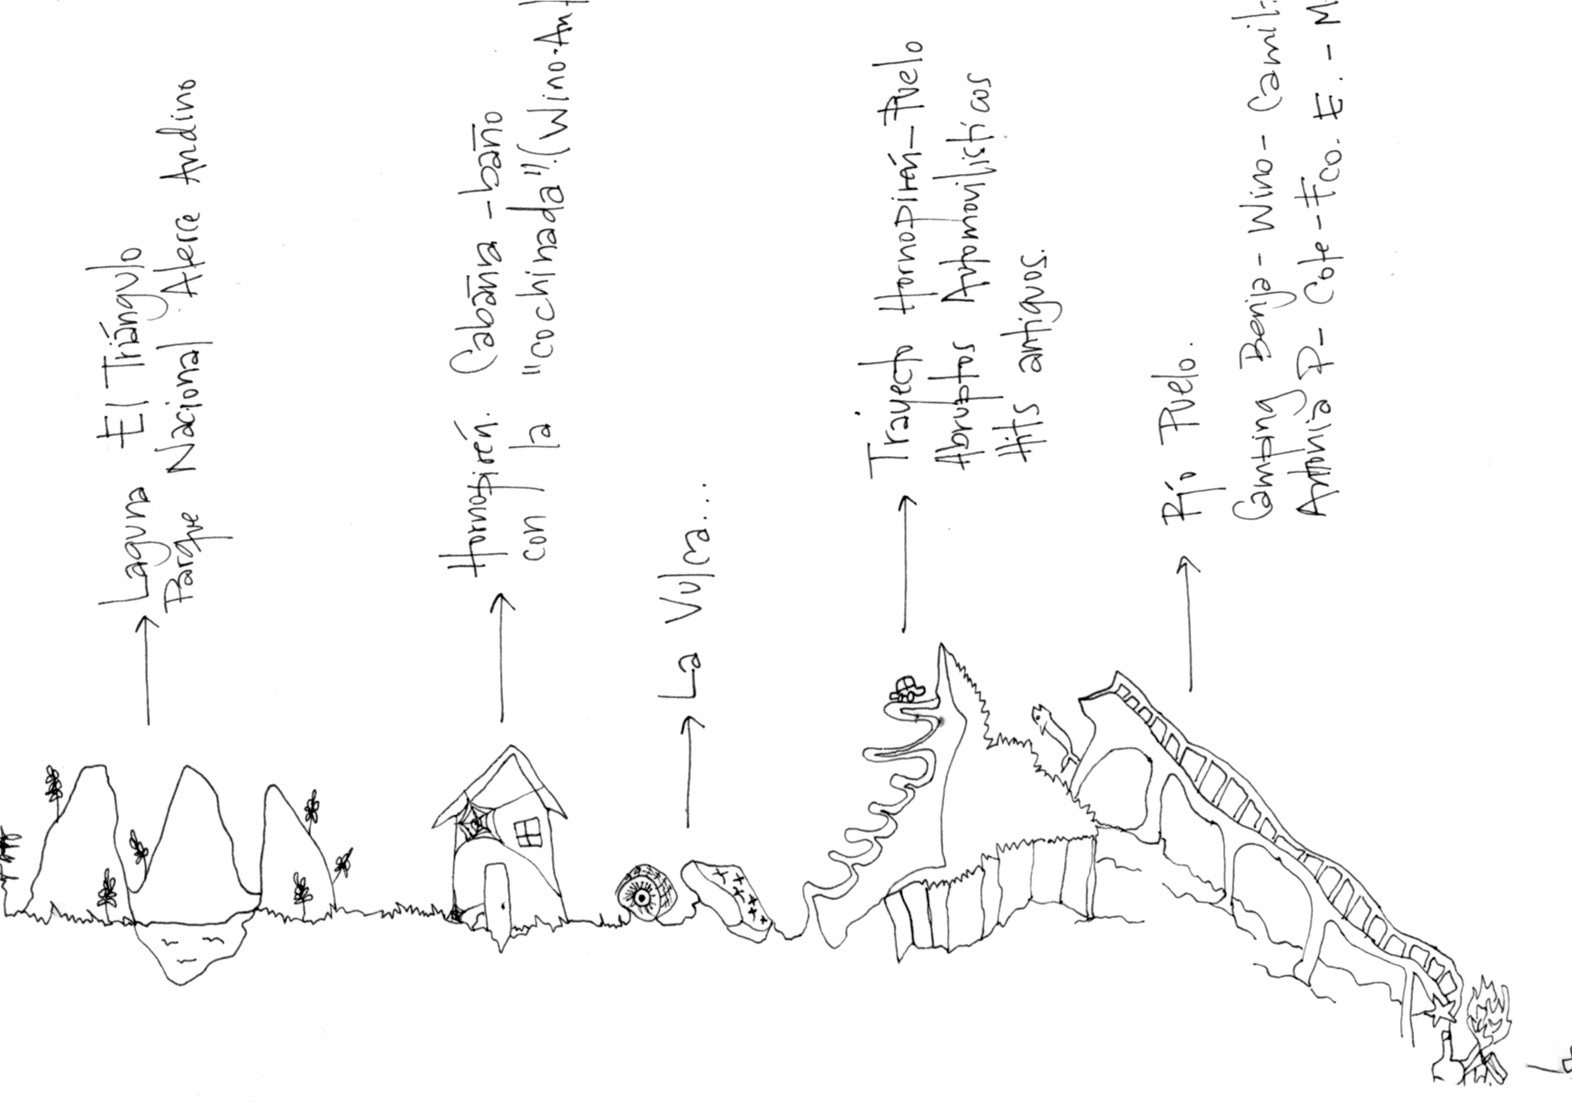 Laguna El Triángulo
Parque Nacional Alerce Andino
Hornopirén. Cabaña - baño
con la "cochinada". (Wino-An
La Vulca...
Trayecto Hornopirén-Puelo
Abruptos Automovilísticos
Hits antiguos.
Río Puelo.
Camping Benja - Wino - Camil
Antonia P - Cote - Fco. E. - M